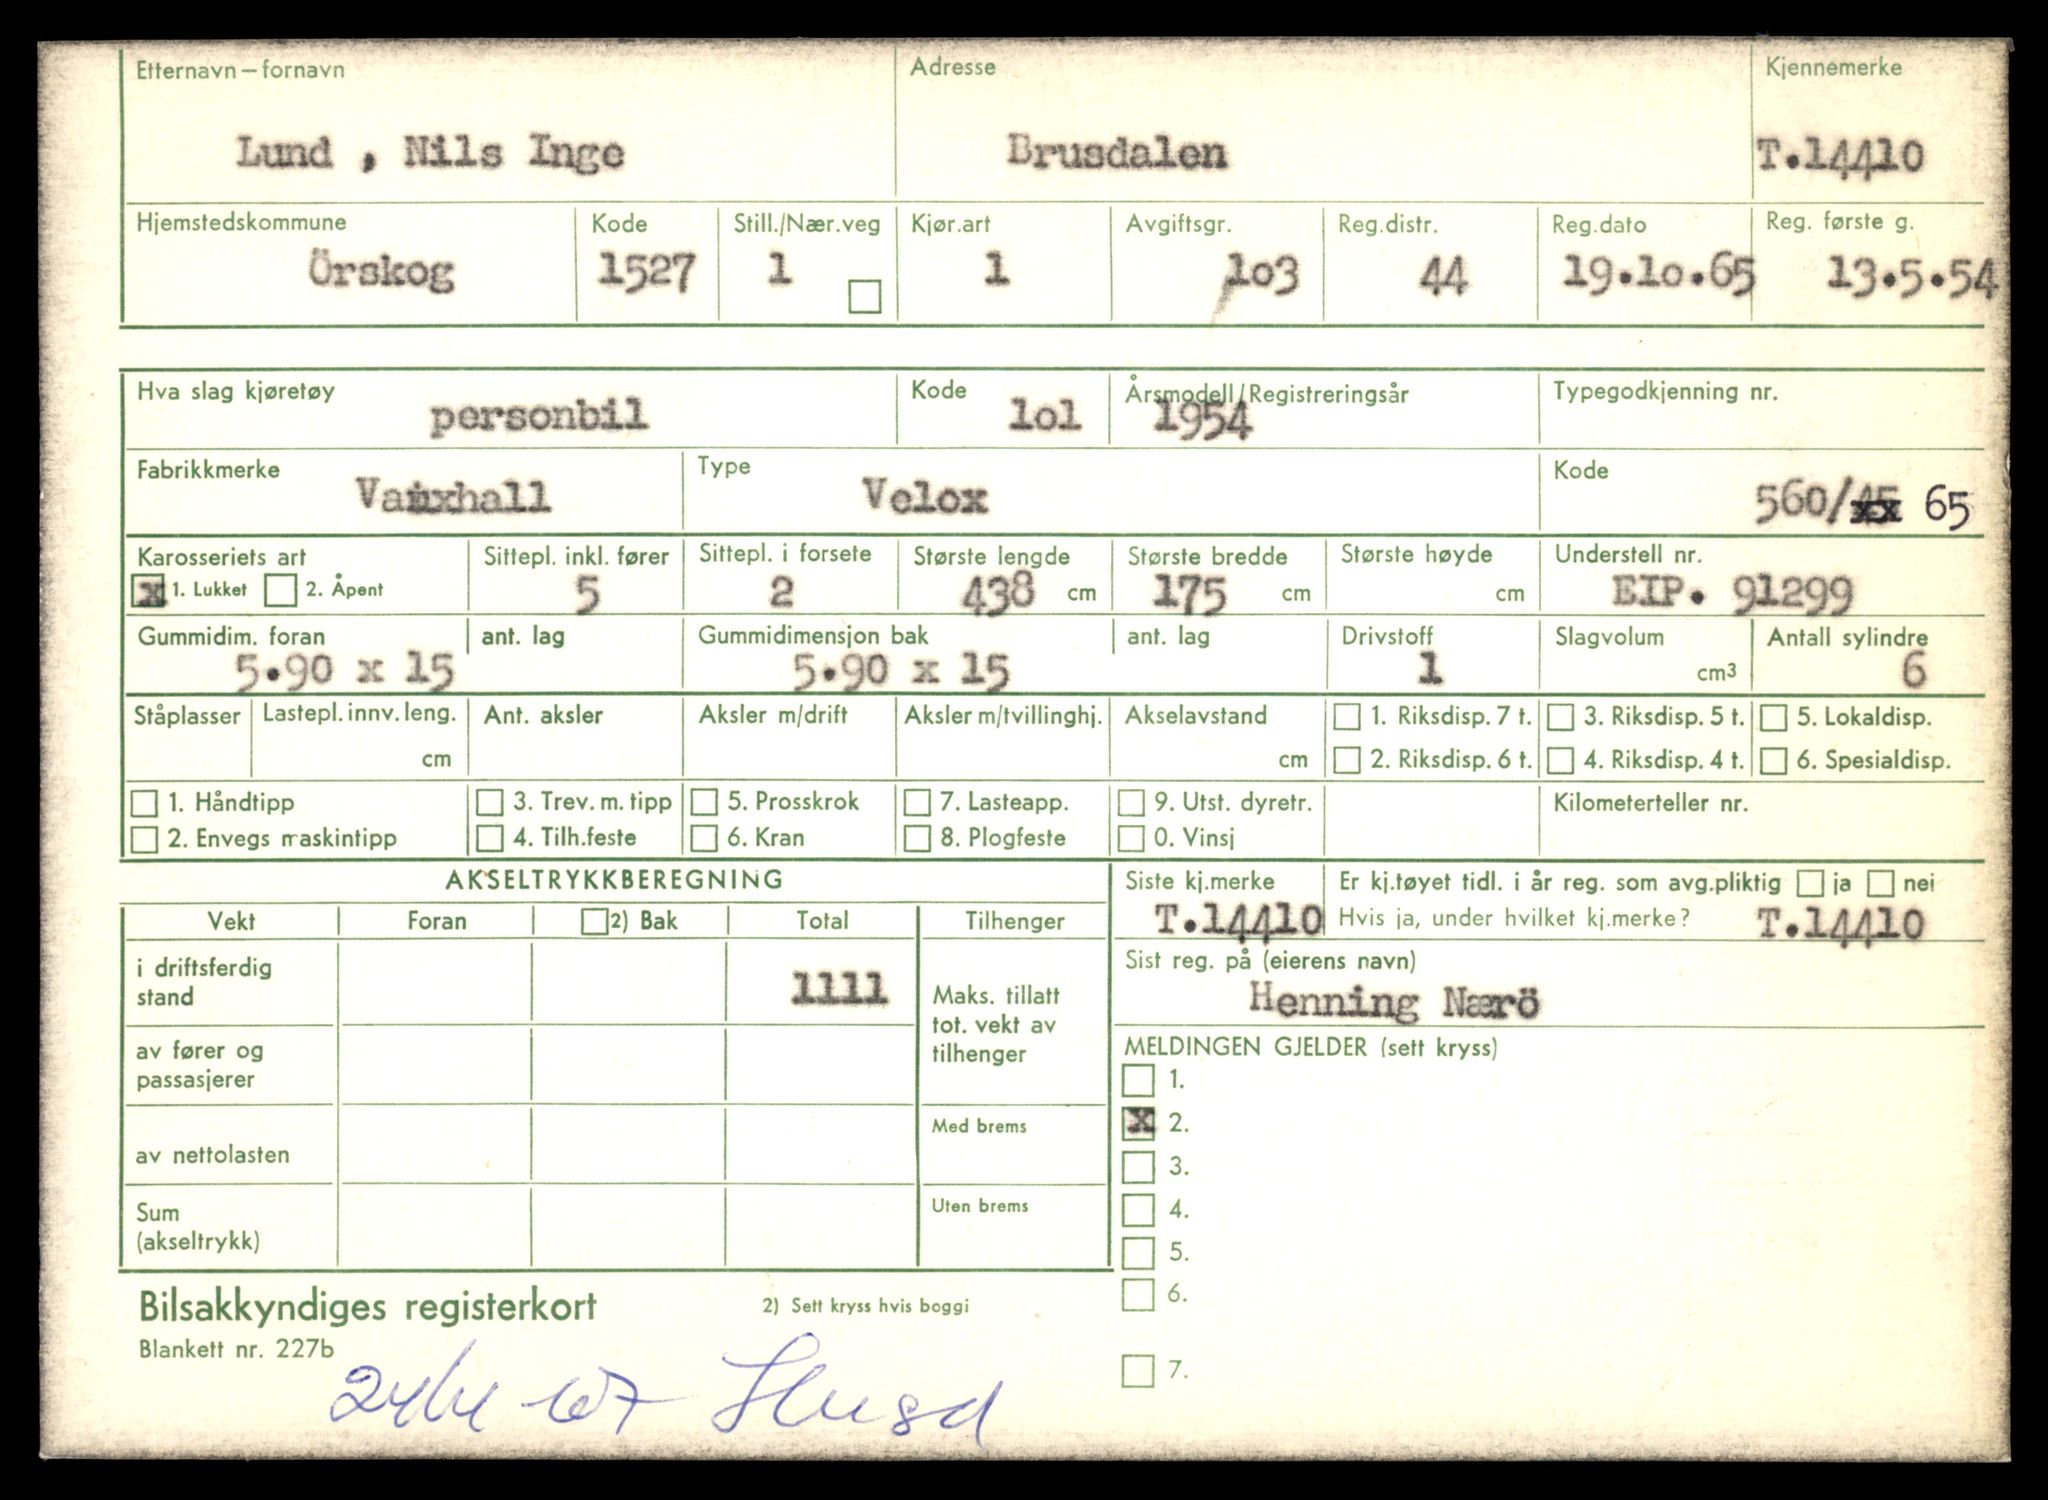 Etternavn – fornavn Adresse Kjennemerke
Lund , Nils Inge Brusdalen T.14410
Hjemstedskommune Kode Still./Nær.veg Kjør.art Avgiftsgr. Reg.distr. Reg.dato Reg. første g.
Örskog 1527 1 1 1o3 44 19.1o.65 13.5.54
Hva slag kjøretøy Kode Årsmodell/Registreringsår Typegodkjenning nr.
personbil lol 1954
Fabrikkmerke Type Kode
Vauxhall Velox 560/45 65
Karosseriets art Sittepl. inkl. fører Sittepl. i forsete Største lengde Største bredde Største høyde Understell nr.
x 1. Lukket 2. Åpent 5 2 438 cm 175 cm cm EIP. 91299
Gummidim. foran ant. lag Gummidimensjon bak ant. lag Drivstoff Slagvolum Antall sylindre
5.90 x 15 5.90 x 15 1 cm3 6
Ståplasser Lastepl. innv. leng. Ant. aksler Aksler m/drift Aksler m/tvillinghj. Akselavstand 1. Riksdisp. 7 t. 3. Riksdisp. 5 t. 5. Lokaldisp.
cm cm 2. Riksdisp. 6 t. 4. Riksdisp. 4 t. 6. Spesialdisp.
1. Håndtipp 3. Trev. m. tipp 5. Prosskrok 7. Lasteapp. 9. Utst. dyretr. Kilometerteller nr.
2. Envegs maskintipp 4. Tilh.feste 6. Kran 8. Plogfeste 0. Vinsj
AKSELTRYKKBEREGNING Siste kj.merke Er kj.tøyet tidl. i år reg. som avg.pliktig ja nei
Vekt Foran 2) Bak Total Tilhenger T.14410 Hvis ja, under hvilket kj.merke? T.14410
i driftsferdig stand 1111 Maks. tillatt tot. vekt av tilhenger
Sist reg. på (eierens navn)
Henning Nærö
av fører og passasjerer
MELDINGEN GJELDER (sett kryss)
1.
Med brems x 2.
av nettolasten 3.
Uten brems 4.
Sum
(akseltrykk) 5.
6.
Bilsakkyndiges registerkort 2) Sett kryss hvis boggi
Blankett nr. 227b
7.